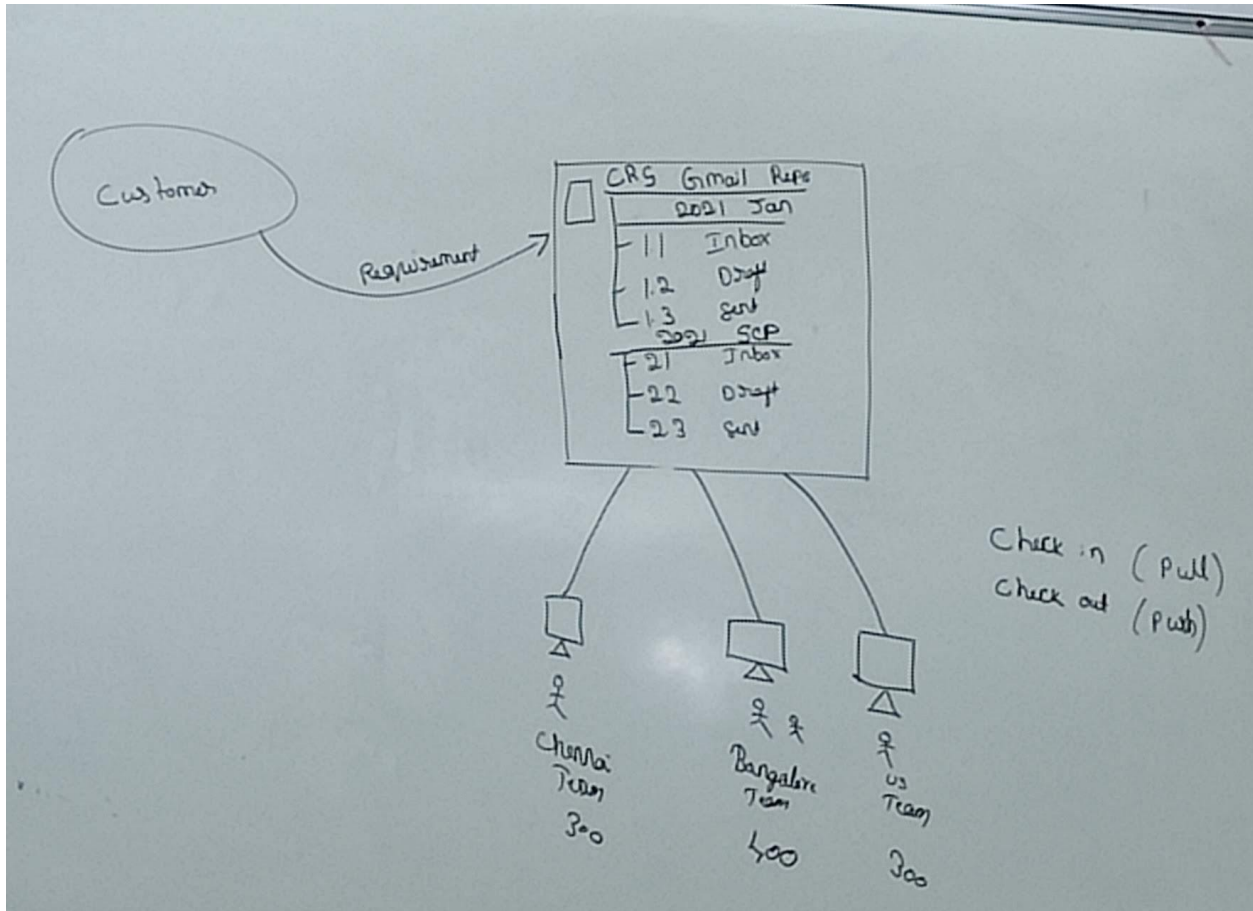 Customer
Requirement
CRS Gmail Repo
2021 Jan
1.1 Inbox
1.2 Draft
1.3 Sent
2021 SEP
21 Inbox
22 Draft
23 Sent
Check in (pull)
Check out (push)
Chennai
Team
300
Bangalore
Team
400
US
Team
300